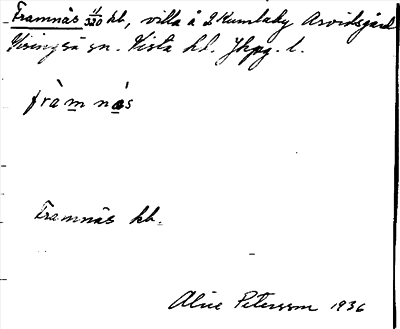 Framnäs 11/320 hl, villa å 2 Kumlaby Arvidsgård
Visingsö sn. Vista hd. Jkpg. l.
fràmnä́s
Framnäs hl.
Alice Petersson 1936